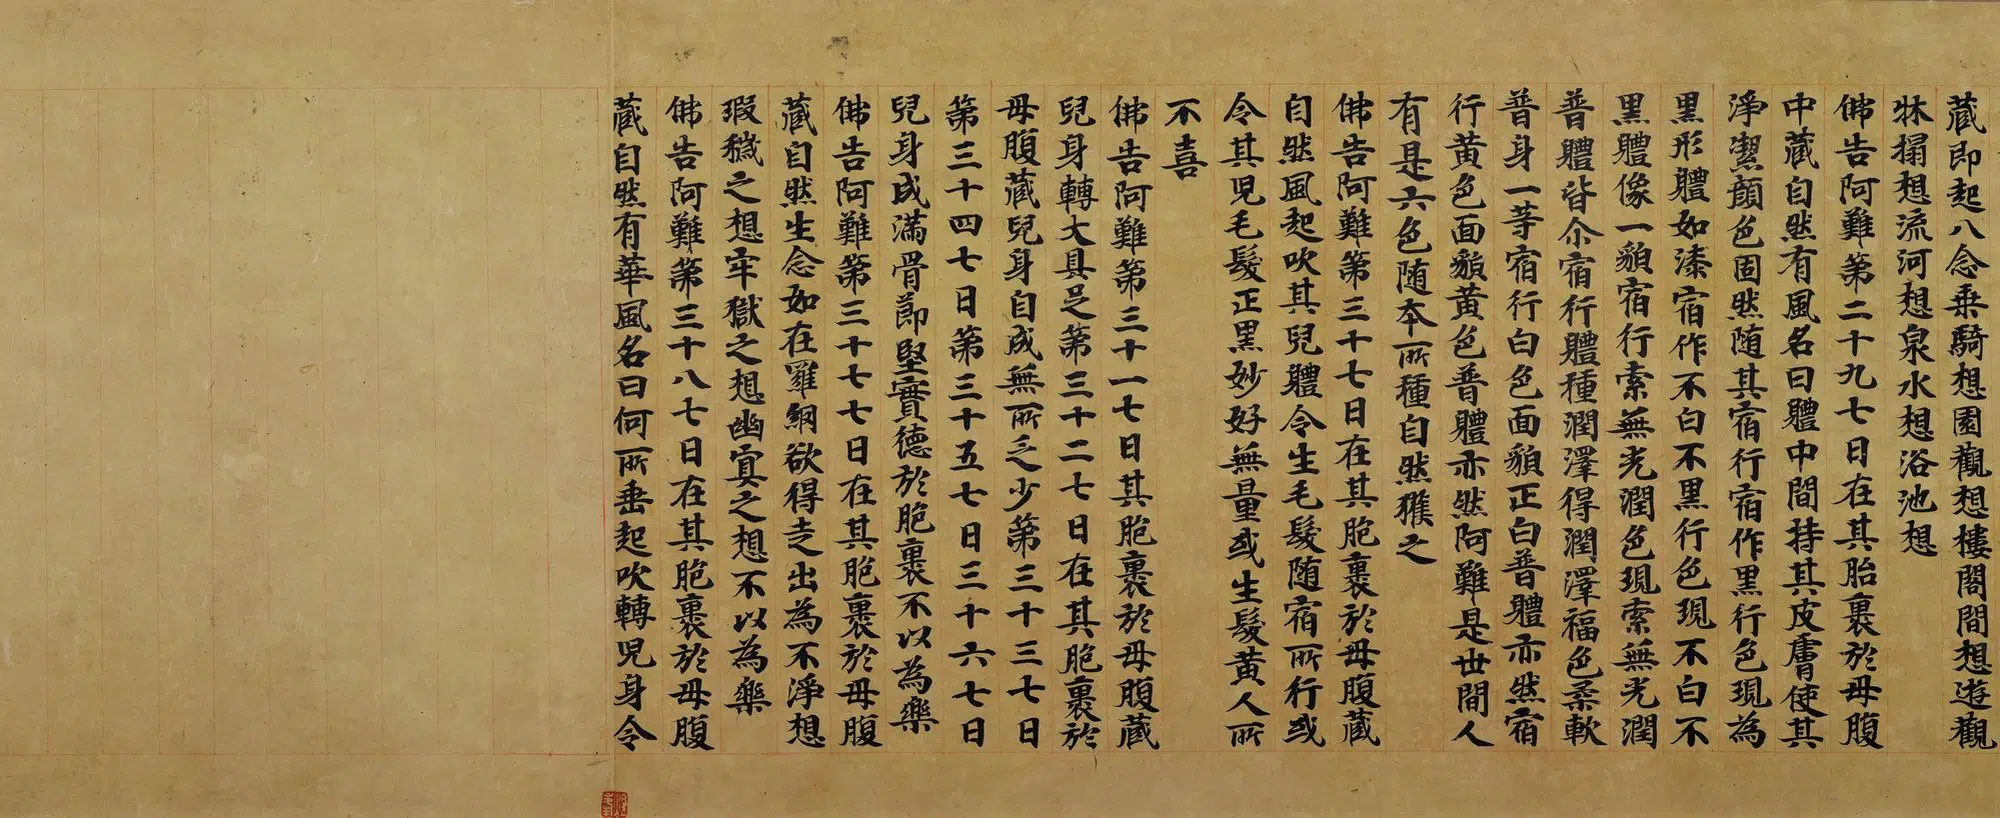 藏即起八念乗騎想園觀想樓閣間想遊觀
牀搨想流河想泉水想浴池想
佛告阿難第二十九七日在其胎裹於母腹
中藏自然有風名曰體中間持其皮膚使其
淨潔顔色固然随其宿行宿作黒行色現為
黒形體如漆宿作不白不黒行色現不白不
黒體像一䫉宿行索無光潤色現索無光潤
普體皆尒宿行體種潤澤得潤澤福色柔軟
普身一等宿行白色面䫉正白普體亦然宿
行黄色面䫉黄色普體亦然阿難是世間人
有是六色随夲所種自然獲之
佛告阿難第三十七日在其胞裹於母腹藏
自然風起吹其兒體令生毛髮随宿所行或
令其児毛髮正黒妙好無量或生髮黄人所
不喜
佛告阿難第三十一七日其胞裹於母腹藏
兒身轉大具足第三十二七日在其胞裹於
母腹藏兒身自成無所乏少第三十三七日
第三十四七日第三十五七日三十六七日
兒身成滿骨節堅實德於胞裹不以為樂
佛告阿難第三十七七日在其胞裹於母腹
藏自然生念如在羅網欲得走出為不淨想
瑕穢之想牢獄之想幽冥之想不以為樂
佛告阿難第三十八七日在其胞裹於母腹
藏自然有華風名曰何所垂起吹轉児身令